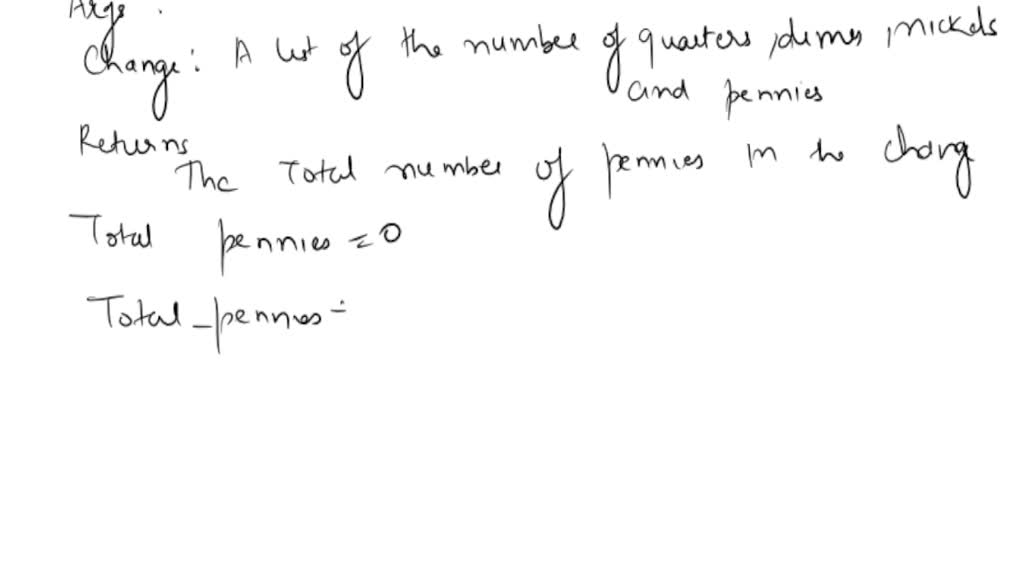 Args :
Change : A list of the number of quarters , dimes , nickels
and pennies
Returns
The Total number of pennies in the chang
Total pennies = 0
Total_pennies =